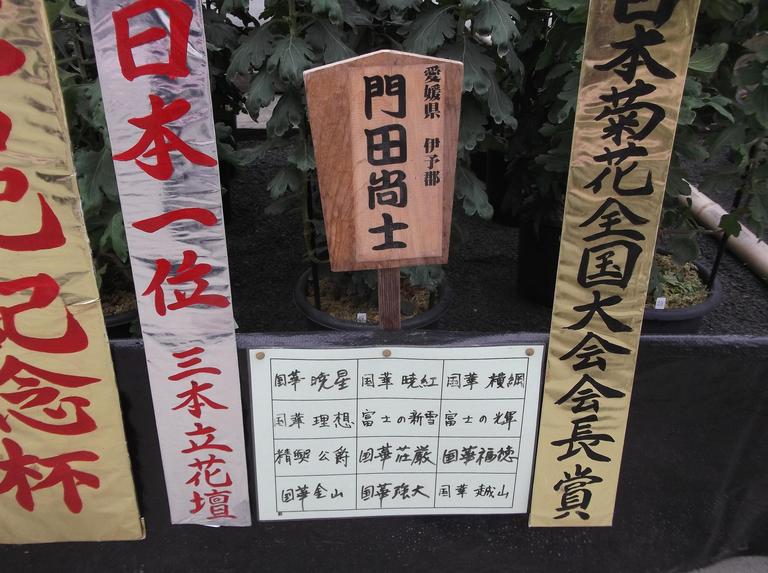 記念杯
日本一位 三本立花壇
愛媛県 伊予郡
門田尚士
日本菊花全国大会会長賞
国華 晩星 国華 暁紅 国華 横綱
国華 理想 富士の新雪 富士の輝
精興 公爵 国華荘厳 国華福徳
国華金山 国華強大 国華 越山